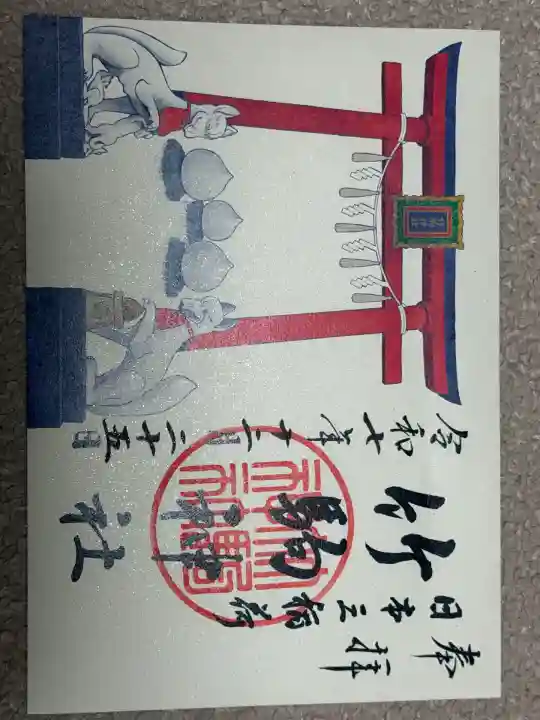 奉拝
日本三稲荷
竹駒神社
令和七年十二月二十五日
竹駒
神社